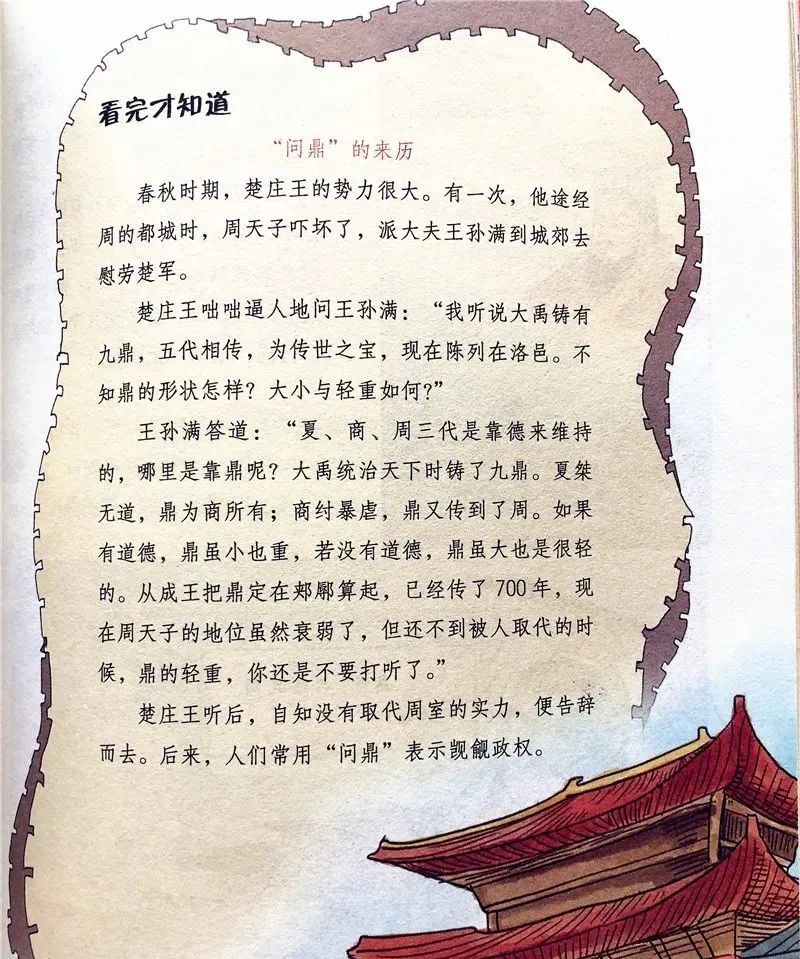 看完才知道
“问鼎”的来历
春秋时期，楚庄王的势力很大。有一次，他途经
周的都城时，周天子吓坏了，派大夫王孙满到城郊去
慰劳楚军。
楚庄王咄咄逼人地问王孙满：“我听说大禹铸有
九鼎，五代相传，为传世之宝，现在陈列在洛邑。不
知鼎的形状怎样？大小与轻重如何？”
王孙满答道：“夏、商、周三代是靠德来维持
的，哪里是靠鼎呢？大禹统治天下时铸了九鼎。夏桀
无道，鼎为商所有；商纣暴虐，鼎又传到了周。如果
有道德，鼎虽小也重，若没有道德，鼎虽大也是很轻
的。从成王把鼎定在郏鄏算起，已经传了 700 年，现
在周天子的地位虽然衰弱了，但还不到被人取代的时
候，鼎的轻重，你还是不要打听了。”
楚庄王听后，自知没有取代周室的实力，便告辞
而去。后来，人们常用“问鼎”表示觊觎政权。